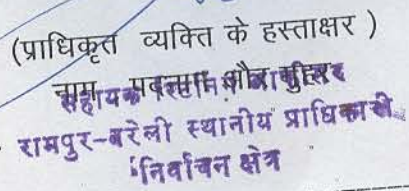 (प्राधिकृत व्यक्ति के हस्ताक्षर )
नाम पदनाम और मुहर
सहायक
रामपुर-बरेली स्थानीय प्राधिकारी
निर्वाचन क्षेत्र